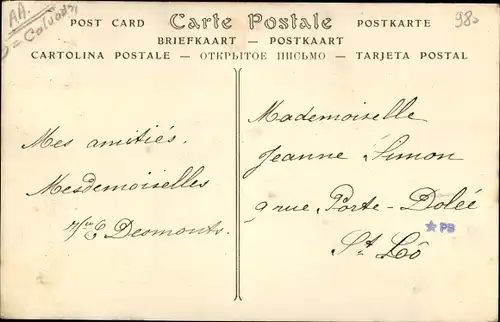 AA.
= Calvados
98.
POST CARD Carte Postale POSTKARTE
BRIEFKAART — POSTKAART
CARTOLINA POSTALE — ОТКРЫТОЕ ПИСЬМО — TARJETA POSTAL
Mes amitiés,
Mesdemoiselles
E Desmonts.
Mademoiselle
Jeanne Simon
9 rue Porte-Dolée
St Lô
PB